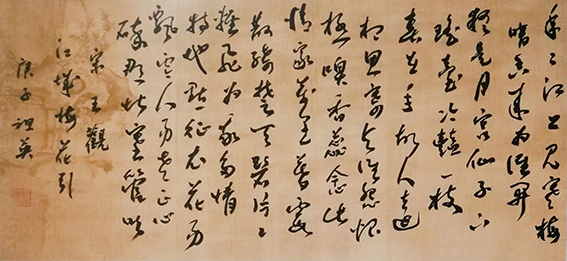 年年江上見寒梅
暗香來為誰開
疑是月宮仙子下
瑤臺冷艷一枝
春在手故人遠
相思寄與誰怨恨
極嗅香蕊念此
情家萬里暮霞
散綺楚天碧片片
輕飛為我多情
特地點征衣花易
飄零人易老正心
碎那堪塞管吹
宋王觀
江城梅花引
庚子祖英